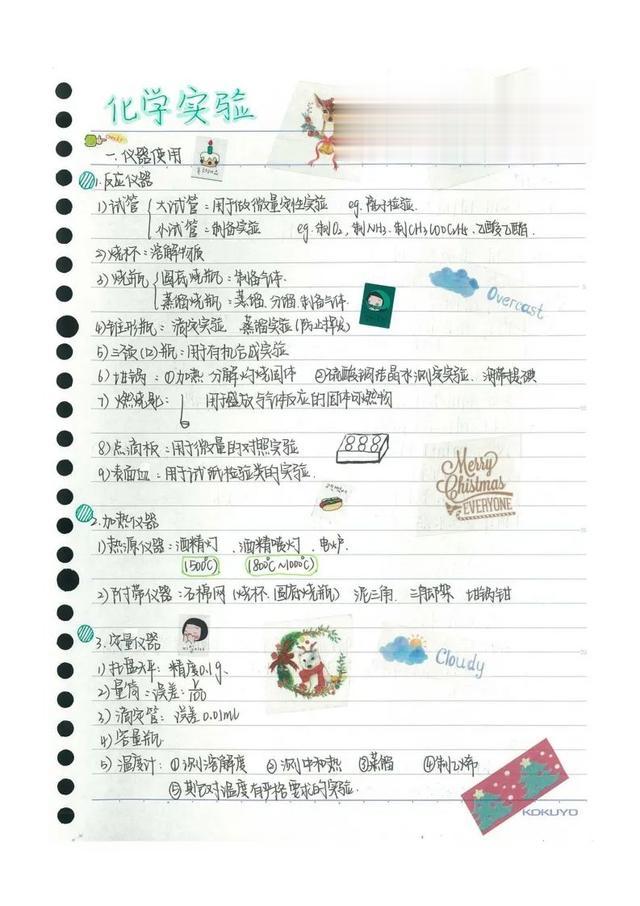 化学实验
一.仪器使用
1.反应仪器
1)试管 大试管:用于做微量定性实验 eg.
小试管:制备实验 eg.制O₂,制NH₃.制CH₃COOC₂H₅.乙酸乙酯.
2)烧杯:溶解物质
3)烧瓶 圆底烧瓶:制备气体.
蒸馏烧瓶:蒸馏.分馏.制备气体.
Overcast
4)锥形瓶:滴定实验 蒸馏实验(防止挥发)
5)三颈(口)瓶:用于有机合成实验
6)坩埚:①加热 分解灼烧固体 ②硫酸铜结晶水测定实验.海带提碘
7)燃烧匙: 用于盛放与气体反应的固体可燃物
8)点滴板:用于微量的对照实验
9)表面皿:用于试纸检验类的实验.
Merry
Christmas
EVERYONE
2.加热仪器
1)热源仪器:酒精灯 .酒精喷灯 .电炉.
(500℃) (800℃~1000℃)
2)附带仪器:石棉网(烧杯.圆底烧瓶) 泥三角. 三脚架 坩埚钳
3.容量仪器
Cloudy
1)托盘天平:精度0.1g.
2)量筒:误差:
3)滴定管:误差0.01mL
4)容量瓶
5)温度计:①测溶解度 ②测中和热 ③蒸馏 ④制乙烯
⑤其它对温度有严格要求的实验.
KOKUYO